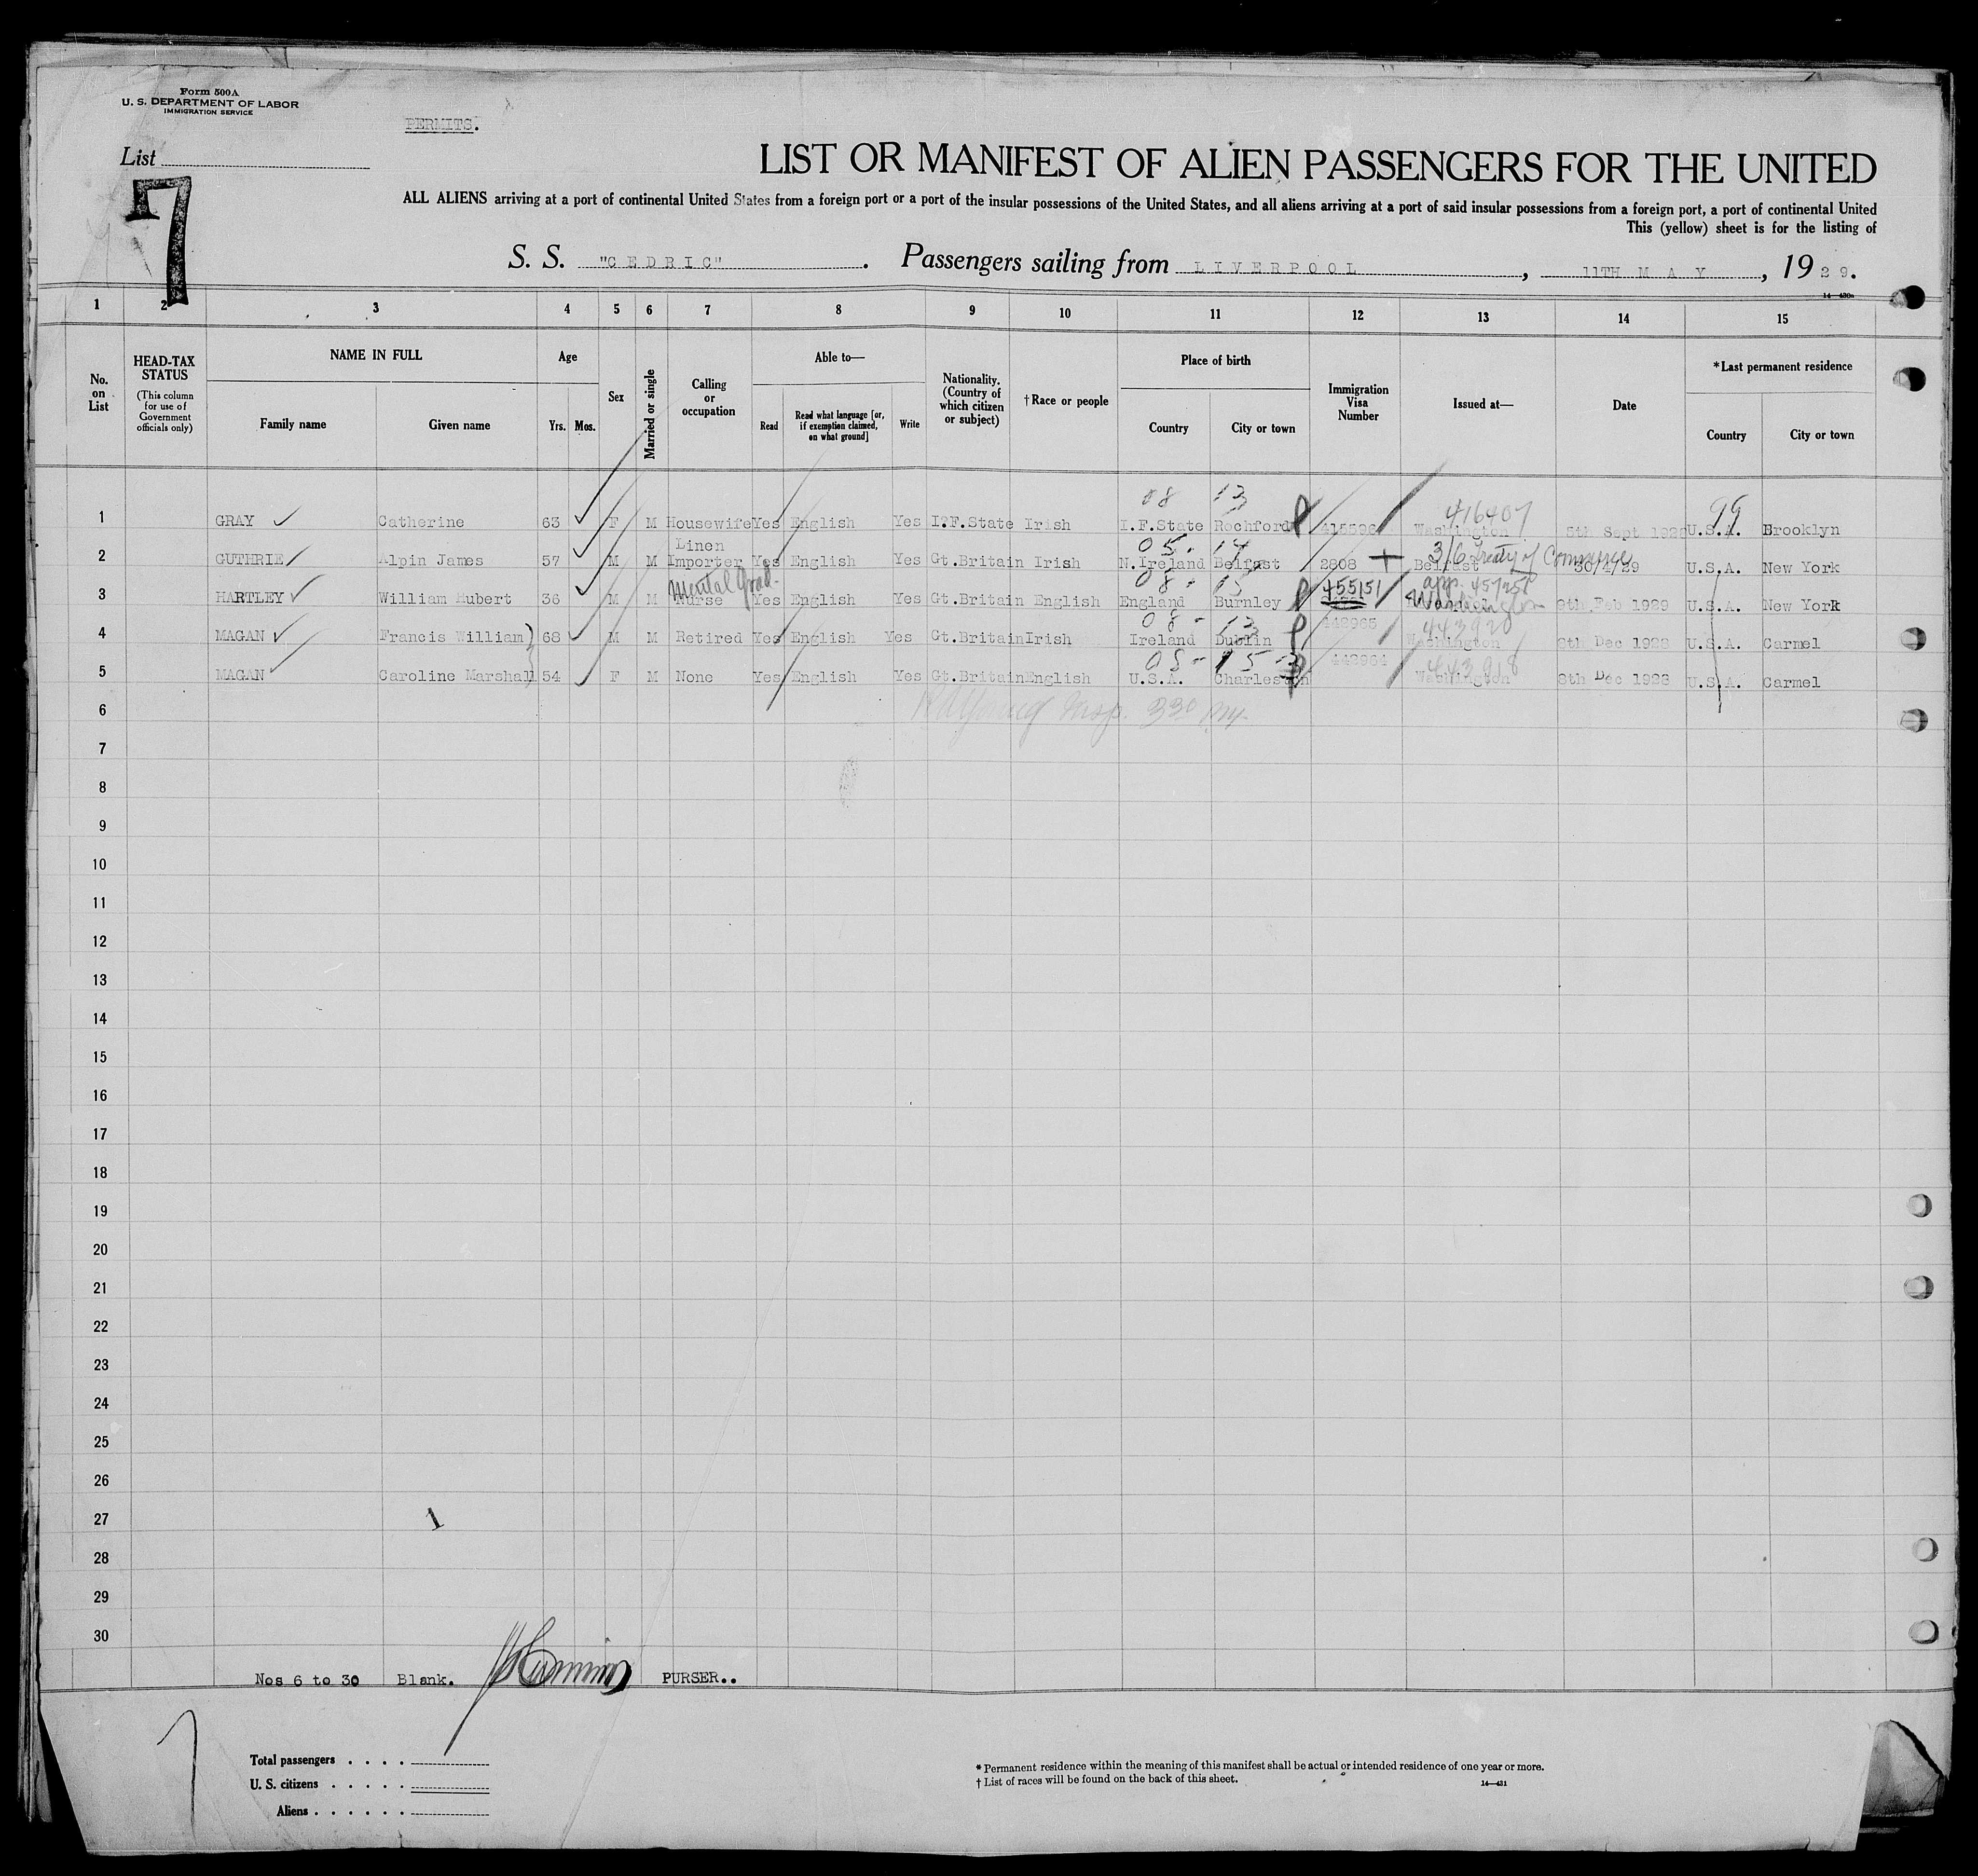 Form 500A
U. S. DEPARTMENT OF LABOR
IMMIGRATION SERVICE
PERMITS.
List
7
LIST OR MANIFEST OF ALIEN PASSENGERS FOR THE UNITED
ALL ALIENS arriving at a port of continental United States from a foreign port or a port of the insular possessions of the United States, and all aliens arriving at a port of said insular possessions from a foreign port, a port of continental United
This (yellow) sheet is for the listing of
S. S. "CEDRIC". Passengers sailing from LIVERPOOL, 11TH MAY, 1929.
1 2 3 4 5 6 7 8 9 10 11 12 13 14 15
No. on List
HEAD-TAX STATUS
(This column for use of Government officials only)
NAME IN FULL
Family name Given name
Age
Yrs. Mos.
Sex
Married or single
Calling or occupation
Able to—
Read Read what language [or, if exemption claimed, on what ground] Write
Nationality. (Country of which citizen or subject)
†Race or people
Place of birth
Country City or town
Immigration Visa Number
Issued at—
Date
*Last permanent residence
Country City or town
08 13 416407 99
1 GRAY Catherine 63 F M Housewife Yes English Yes I.F.State Irish I.F.State Rochford 415596 Washington 5th Sept 1928 U.S.A. Brooklyn
Linen 05- 14 3/6 Treaty of Commerce
2 GUTHRIE Alpin James 57 M M Importer Yes English Yes Gt.Britain Irish N.Ireland Belfast 2808 Belfast 30/4/29 U.S.A. New York
Mental Grad. 08- 15 455151 app. 457251
3 HARTLEY William Hubert 36 M M Nurse Yes English Yes Gt.Britain English England Burnley Washington 9th Feb 1929 U.S.A. New York
08- 13 442965 443920
4 MAGAN Francis William 68 M M Retired Yes English Yes Gt.Britain Irish Ireland Dublin Washington 8th Dec 1928 U.S.A. Carmel
08- 15 442964 443918
5 MAGAN Caroline Marshall 54 F M None Yes English Yes Gt.Britain English U.S.A. Charleston Washington 8th Dec 1928 U.S.A. Carmel
6 Insp. 330
7
8
9
10
11
12
13
14
15
16
17
18
19
20
21
22
23
24
25
26
27 1
28
29
30
Nos 6 to 30 Blank. PURSER..
Total passengers
U. S. citizens
Aliens
* Permanent residence within the meaning of this manifest shall be actual or intended residence of one year or more.
† List of races will be found on the back of this sheet. 14—431